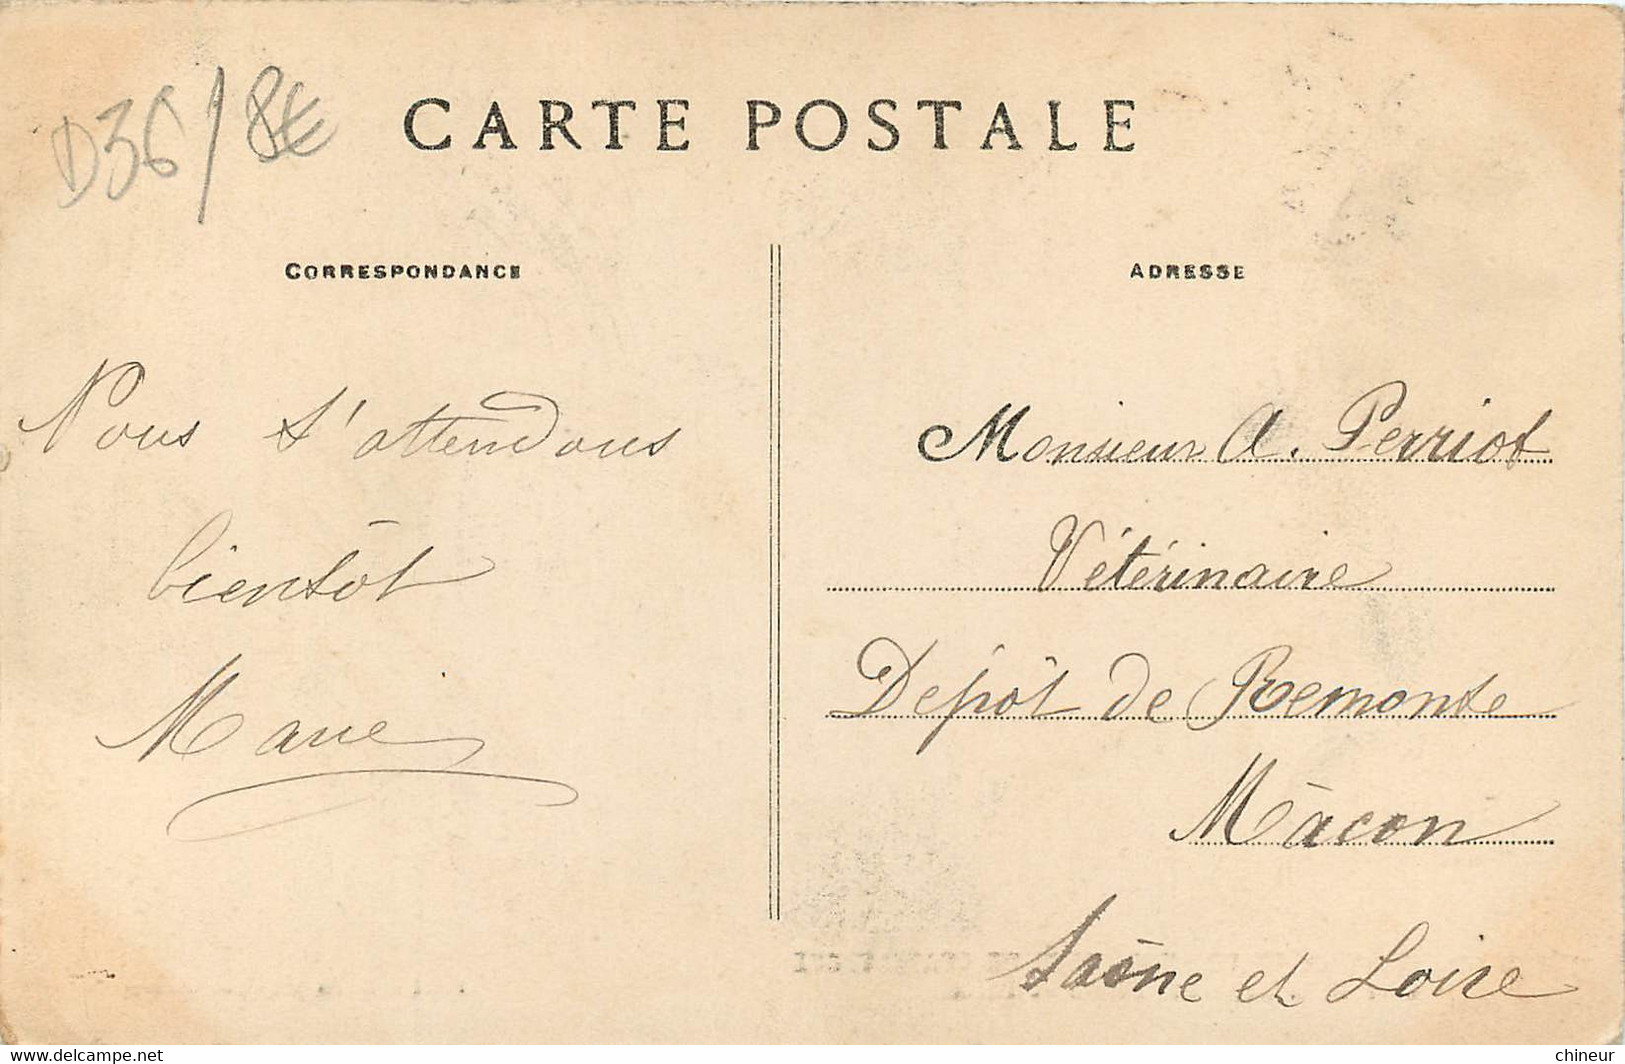 D36/8€
CARTE POSTALE
CORRESPONDANCE
Nous t'attendons
bientôt
Marie
ADRESSE
Monsieur A. Perriot
Vétérinaire
Dépôt de Remonte
Mâcon
Saône et Loire
https://www.delcampe.net
chineur